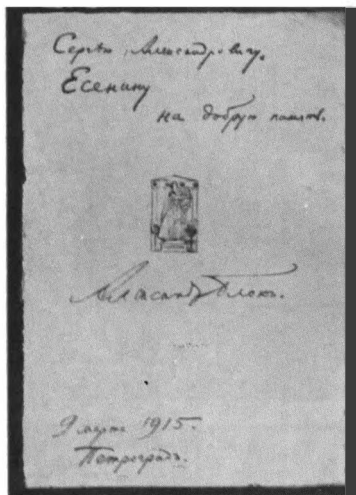 Сергѣю Александровичу
Есенину
на добрую память.
Александръ Блокъ.
9 марта 1915.
Петроградъ.